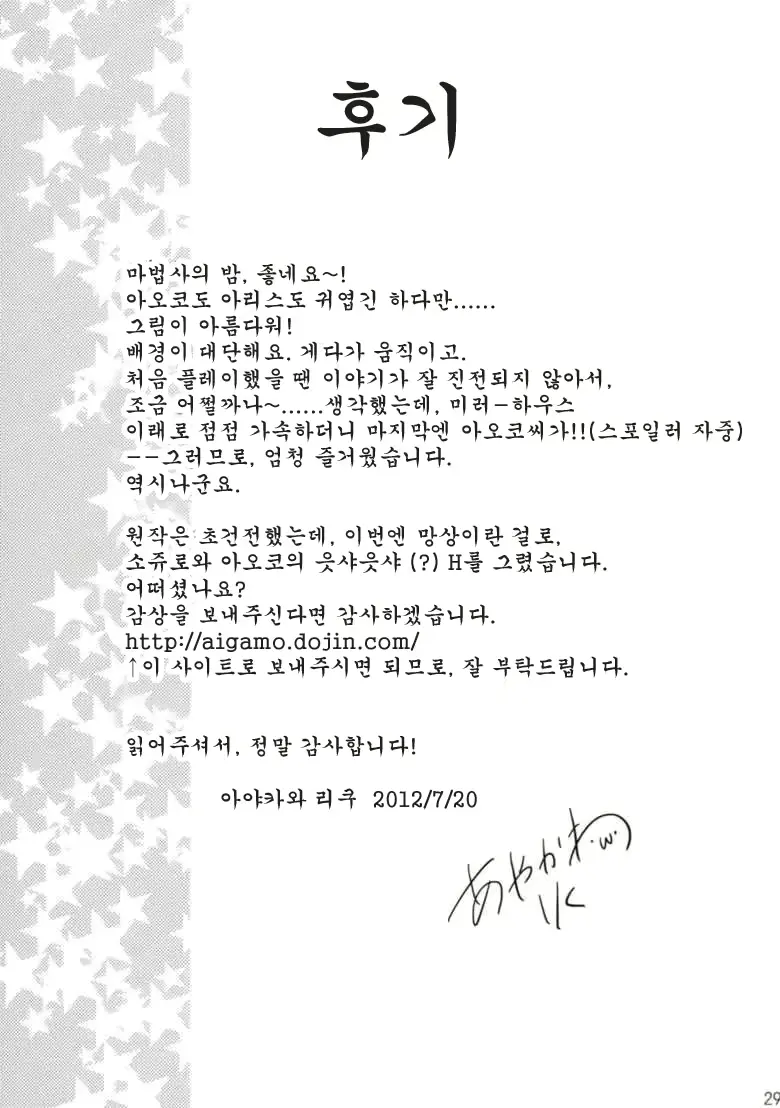 후기
마법사의 밤, 좋네요~!
아오코도 아리스도 귀엽긴 하다만......
그림이 아름다워!
배경이 대단해요. 게다가 움직이고.
처음 플레이했을 땐 이야기가 잘 진전되지 않아서,
조금 어쩔까나~......생각했는데, 미러-하우스
이래로 점점 가속하더니 마지막엔 아오코씨가!!(스포일러 자중)
--그러므로, 엄청 즐거웠습니다.
역시나군요.
원작은 초건전했는데, 이번엔 망상이란 걸로,
소쥬로와 아오코의 읏샤읏샤 (?) H를 그렸습니다.
어떠셨나요?
감상을 보내주신다면 감사하겠습니다.
http://aigamo.dojin.com/
↑이 사이트로 보내주시면 되므로, 잘 부탁드립니다.
읽어주셔서, 정말 감사합니다!
아야카와 리쿠 2012/7/20
あやかわ
29